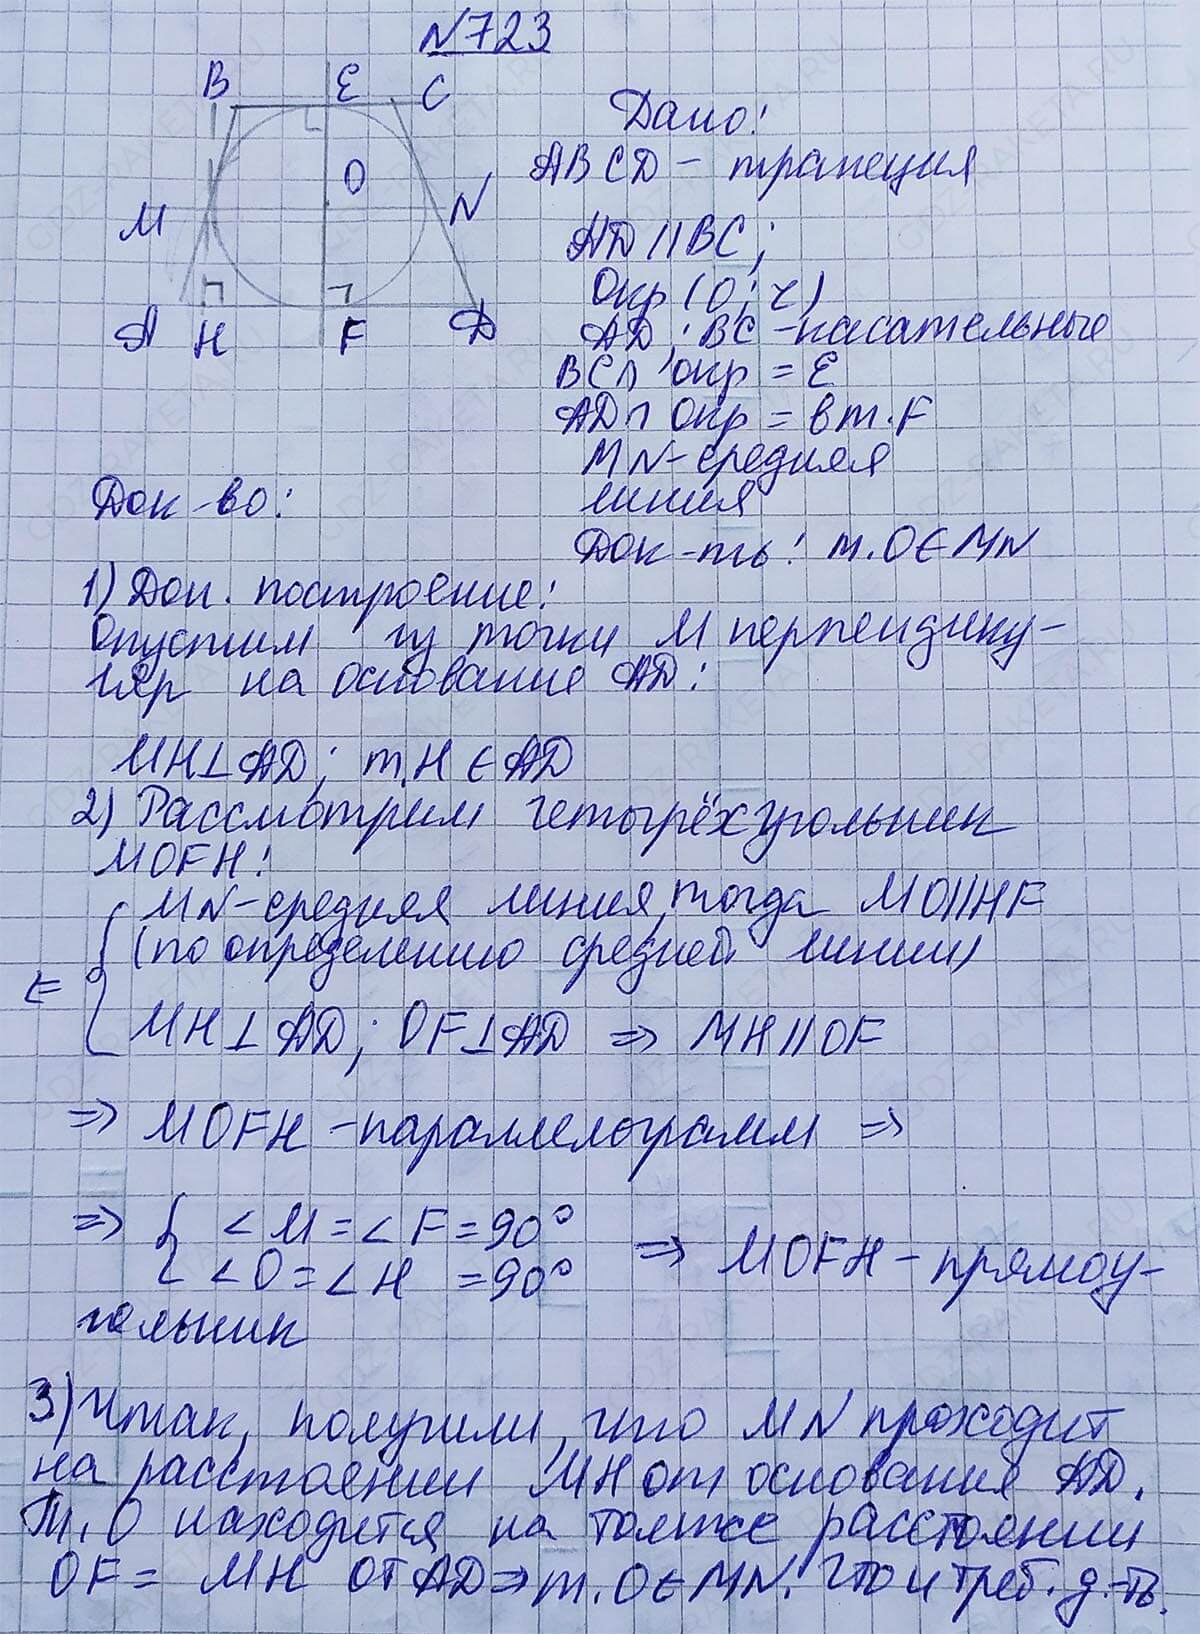 N723
B E C
O
M N
A H F D
Дано:
ABCD - трапеция
AD || BC;
Окр (O; r)
AD; BC - касательные
BC ∩ окр = E
AD ∩ Окр = в т. F
MN - средняя
линия
Док-ть: т. O ∈ MN
Док-во:
1) Доп. построение:
Опустим из точки M перпендику-
ляр на основание AD:
MH ⊥ AD; т. H ∈ AD
2) Рассмотрим четырёхугольник
MOFH:
MN - средняя линия, тогда MO || HF
(по определению средней линии)
MH ⊥ AD; OF ⊥ AD => MH || OF
=> MOFH - параллелограмм =>
=> { < M = < F = 90°
< O = < H = 90° => MOFH - прямоу-
гольник
3) Итак, получили, что MN проходит
на расстоянии MH от основания AD.
Т. O находится на том же расстоянии
OF = MH от AD => т. O ∈ MN. Что и треб. д-ть.